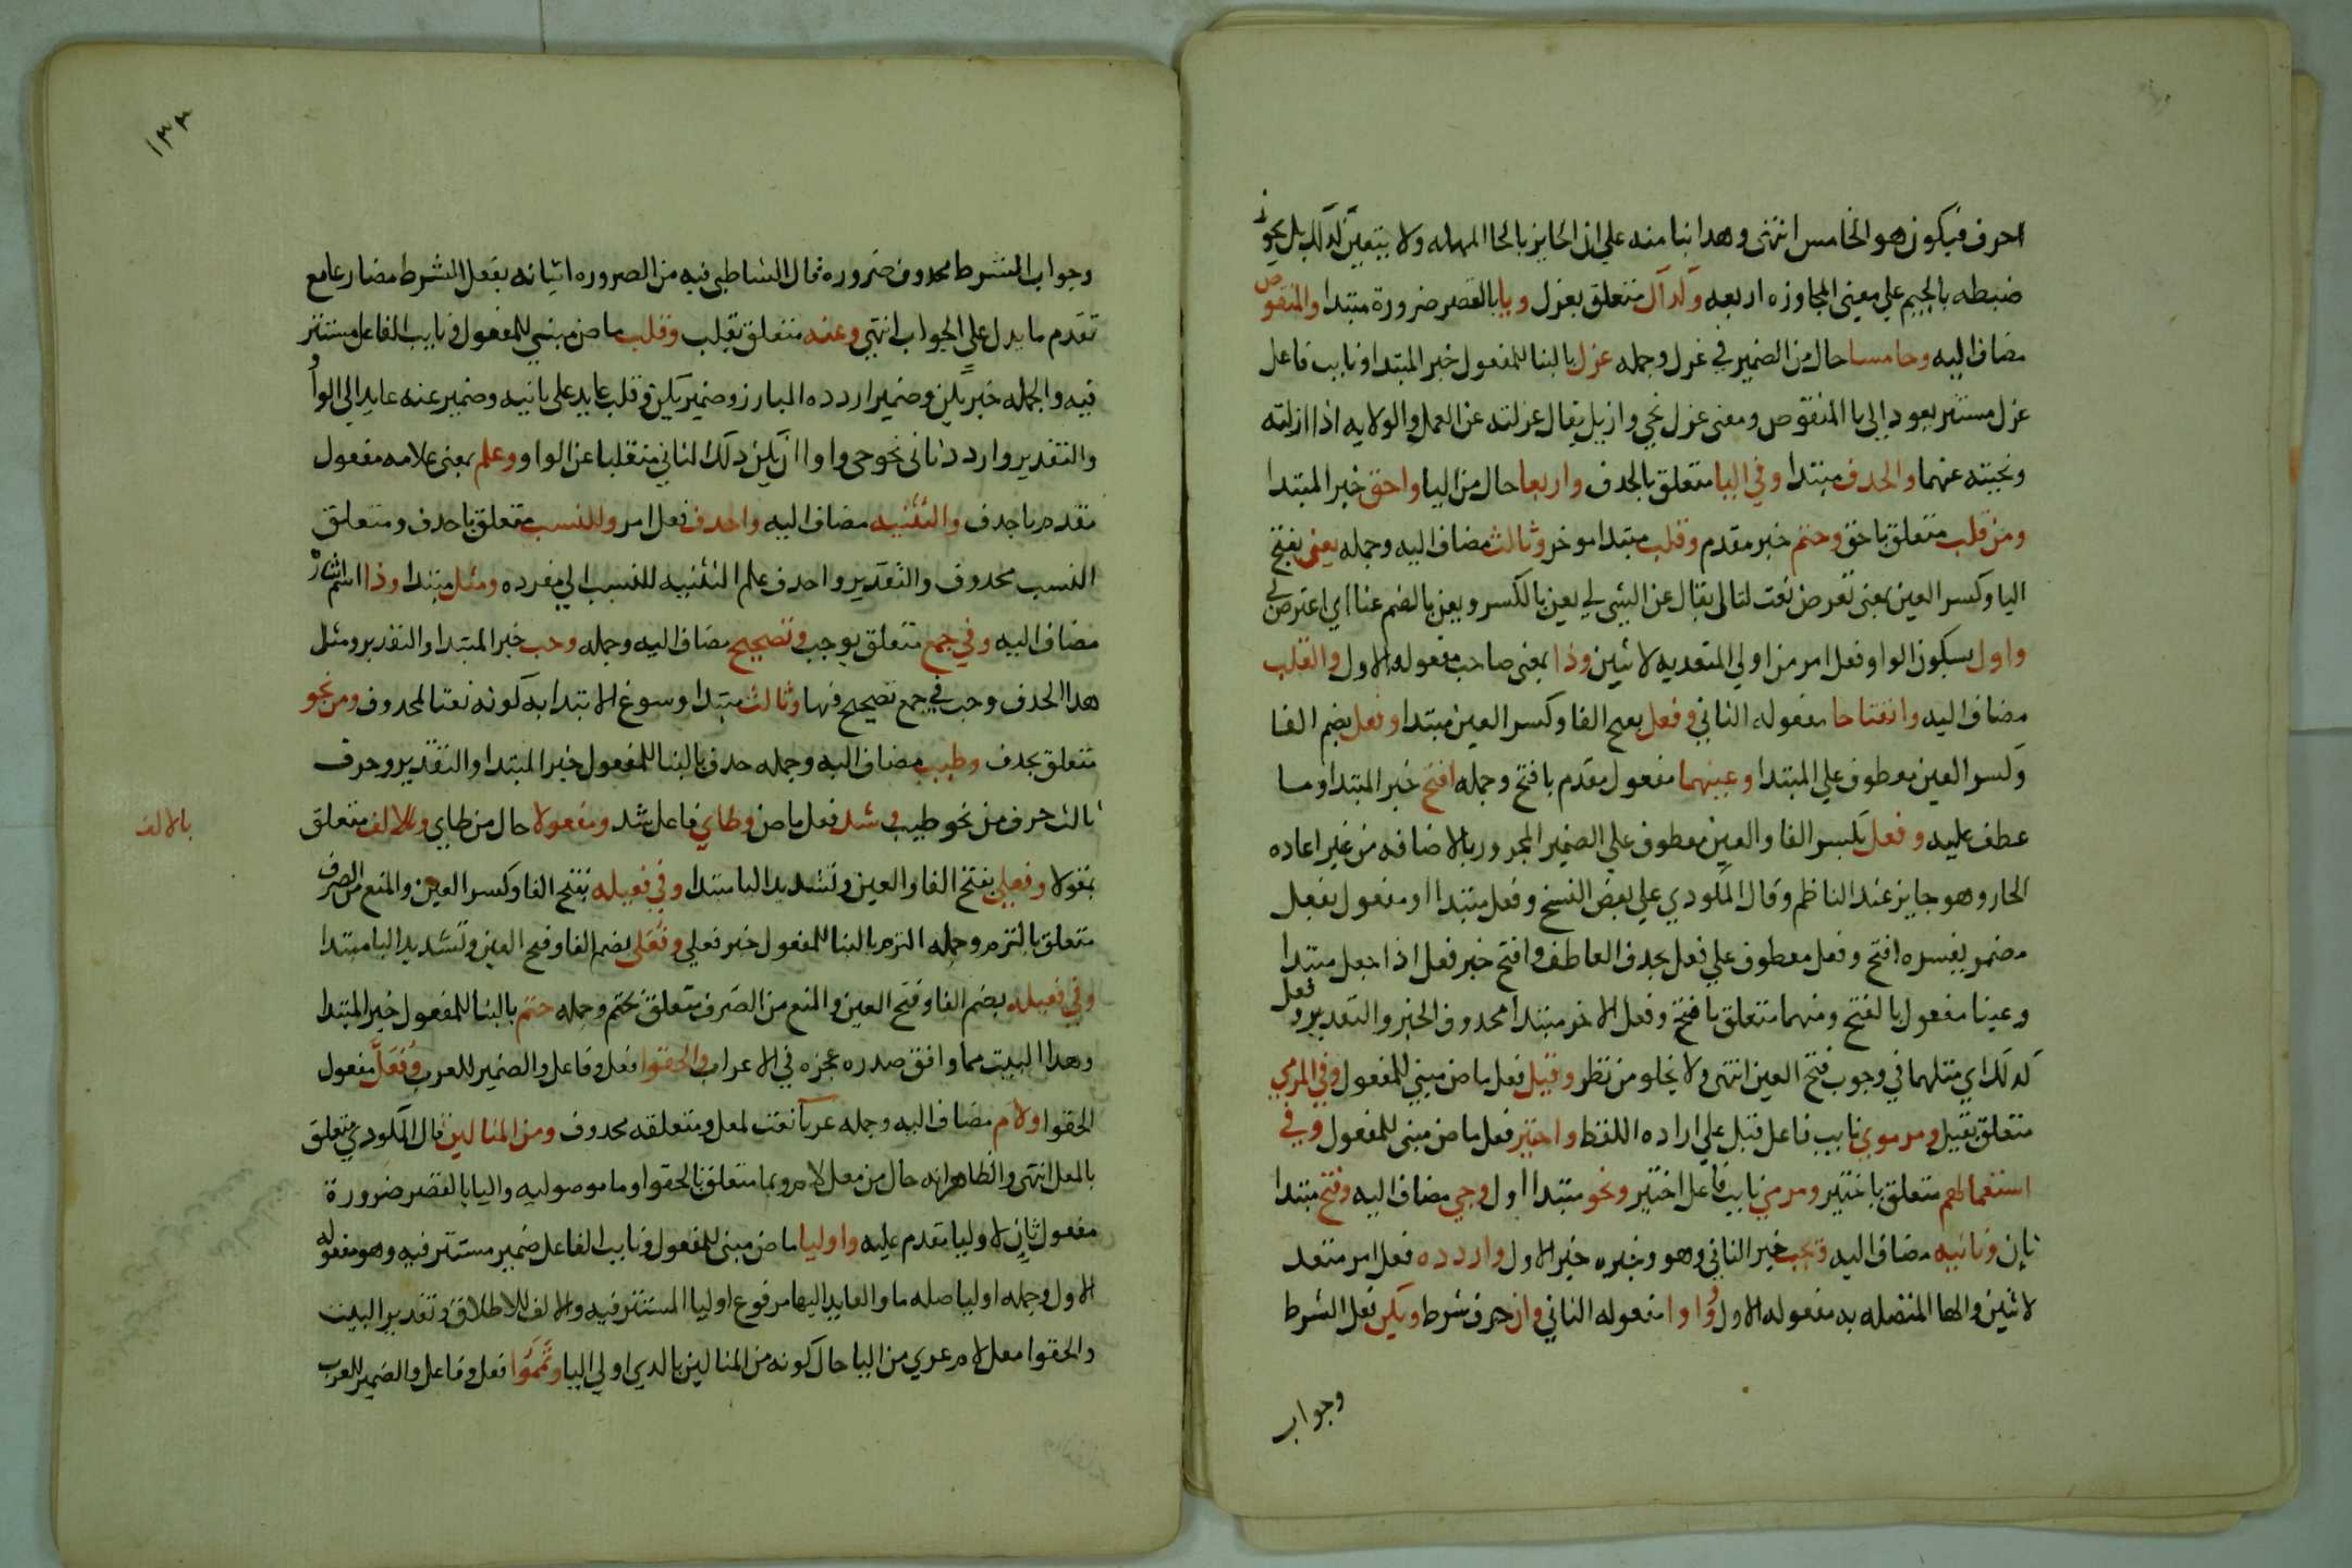 احرف فيكون هو الخامس انتهى وهدا بنا منه على ان الحايز بالحا المهمله ولا يتعين كدلك بل يجوز
ضبطه بالجيم على معنى المجاوزه اربعه وكداك متعلق بعزل ويا بالقصر ضرورة مبتدا والمنقوص
مضاف اليه وخامسا حال من الضمير في عزل وجمله عزل بالبنا للمفعول خبر المبتدا ونايب فاعل
عزل مستتر يعود الى يا المنقوص ومعنى عزل نحي وازيل يقال عزلته عن العمل والولايه اذا ازلته
ونحيته عنهما والحدف مبتدا وفي اليا متعلق بالحدف واربعا حال من اليا واحق خبر المبتدا
ومن قلب متعلق باحق وحتم خبر مقدم وقلب مبتدا موخر وثالث مضاف اليه وجمله يعن بفتح
اليا وكسر العين بمعنى تعرض نعت لثالث يقال عن الشي لي يعن بالكسر ويعن بالضم عنا اي اعترض لي
واول بسكون الواو فعل امر من اولي المتعديه لاثنين وذا بمعنى صاحب مفعوله الاول والقلب
مضاف اليه وانفتاحا مفعوله الثاني وفعل بفتح الفا وكسر العين مبتدا وفعل بضم الفا
وكسر العين معطوف علي المبتدا وعينهما مفعول مقدم بافتح وجمله افتح خبر المبتدا وما
عطف عليه وفعل بكسر الفا والعين معطوف علي الضمير المجرور بالاضافه من غير اعاده
الجار وهو جايز عند الناظم وقال المكودي علي بعض النسخ وفعل مبتدا او مفعول بفعل
مضمر يفسره افتح وفعل معطوف علي فعل بحدف العاطف وافتح خبر فعل اذا جعل مبتدا
وعينا مفعول بالفتح ومنهما متعلق بافتح وفعل الاخر مبتدا محدوف الخبر والتقدير وفعل
كدلك اي مثلهما في وجوب فتح العين انتهى ولا يخلو من نظر وقيل فعل ماض مبني للمفعول وفي المرمي
متعلق بقيل ومرموي نايب فاعل قيل علي اراده اللفظ واختير فعل ماض مبني للمفعول وفي
استعمالهم متعلق باختير ومرمي نايب فاعل اختير ونحو مبتدا اول وحي مضاف اليه وفتح مبتدا
ثان وثانيه مضاف اليه ويجب خبر الثاني وهو وخبره خبر الاول واردده فعل امر متعد
لاثنين والها المتصله به مفعوله الاول وواوا مفعوله الثاني وان حرف شرط ويكن فعل الشرط
وجواب
١٣٣
وجواب الشرط محدوف ضروره قال الشاطبي فيه من الضروره اتيانه بفعل الشرط مضارعا مع
تقدم ما يدل على الجواب انتهى وعنه متعلق بقلب وقلب ماض مبني للمفعول ونايب الفاعل مستتر
فيه والجمله خبر يكن وضمير اردده البارز وضمير يكن وقلب عايد على ثانيه وضمير عنه عايد الى الواو
والتقدير واردد ثاني نحو حي واوا ان يكن ذلك الثاني منقلبا عن الواو وعلم بمعنى علامه مفعول
مقدم باحدف والتثنيه مضاف اليه واحدف فعل امر وللنسب متعلق باحدف ومتعلق
النسب محدوف والتقدير واحدف علم التثنيه للنسب الي مفرده ومثل مبتدا وذا اسم اشارة
مضاف اليه وفي جمع متعلق بوجب وتصحيح مضاف اليه وجمله وجب خبر المبتدا والتقدير ومثل
هدا الحدف وجب في جمع تصحيح فيها وثالث مبتدا وسوغ الابتدا به كونه نعتا لمحدوف ومن نحو
متعلق بحدف وطيب مضاف اليه وجمله حدف بالبنا للمفعول خبر المبتدا والتقدير وحرف
ثالث حرف من نحو طيب وشد فعل ماض وطاي فاعل شد ومقولا حال من طاي وبالالف متعلق
بالالف
بمقولا وفعلي بفتح الفا والعين وتشديد اليا مبتدا وفي فعيله بفتح الفا وكسر العين والمنع من الصرف
متعلق بالتزم وجمله التزم بالبنا للمفعول خبر فعلي وفعلي بضم الفا وفتح العين وتشديد اليا مبتدا
وفي فعيله بضم الفا وفتح العين والمنع من الصرف متعلق بحتم وجمله حتم بالبنا للمفعول خبر المبتدا
وهدا البيت مما وافق صدره عجزه في الاعراب والحقوا فعل وفاعل والضمير للعرب ومعل مفعول
الحقوا ولام مضاف اليه وجمله عريا نعت لمعل ومتعلقه محدوف ومن المثالين قال المكودي متعلق
بالمعل انتهى والظاهر انه حال من معل لام وبما متعلق بالحقوا وما موصوليه واليا بالقصر ضرورة
مفعول ثان لاوليا مقدم عليه واوليا ماض مبني للمفعول ونايب الفاعل ضمير مستتر فيه وهو مفعوله
الاول وجمله اوليا صله ما والعايد اليها مرفوع اوليا المستتر فيه والالف للاطلاق وتقدير البيت
والحقوا معل لام عري من اليا حال كونه من المثالين بالدي اولي اليا وتمموا فعل وفاعل والضمير للعرب